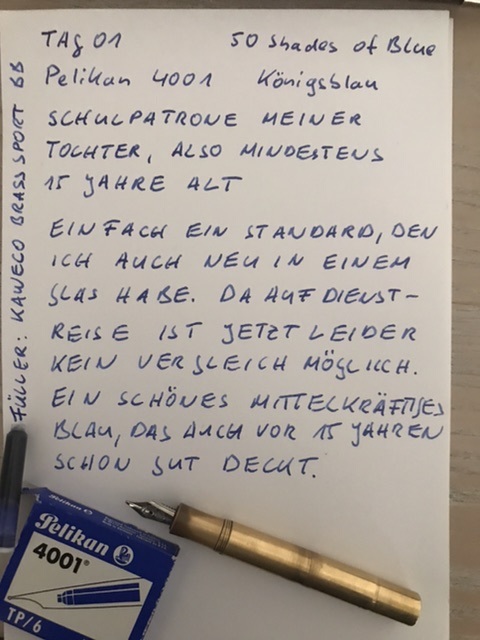 TAG 01 50 Shades of Blue
Pelikan 4001 Königsblau
SCHULPATRONE MEINER
TOCHTER, ALSO MINDESTENS
15 JAHRE ALT
EINFACH EIN STANDARD, DEN
ICH AUCH NEU IN EINEM
GLAS HABE. DA AUF DIENST-
REISE IST JETZT LEIDER
KEIN VERGLEICH MÖGLICH.
EIN SCHÖNES MITTELKRÄFTIGES
BLAU, DAS AUCH VOR 15 JAHREN
SCHON GUT DECKT.
FÜLLER: KAWECO BRASS SPORT BB
Pelikan
4001®
TP/6